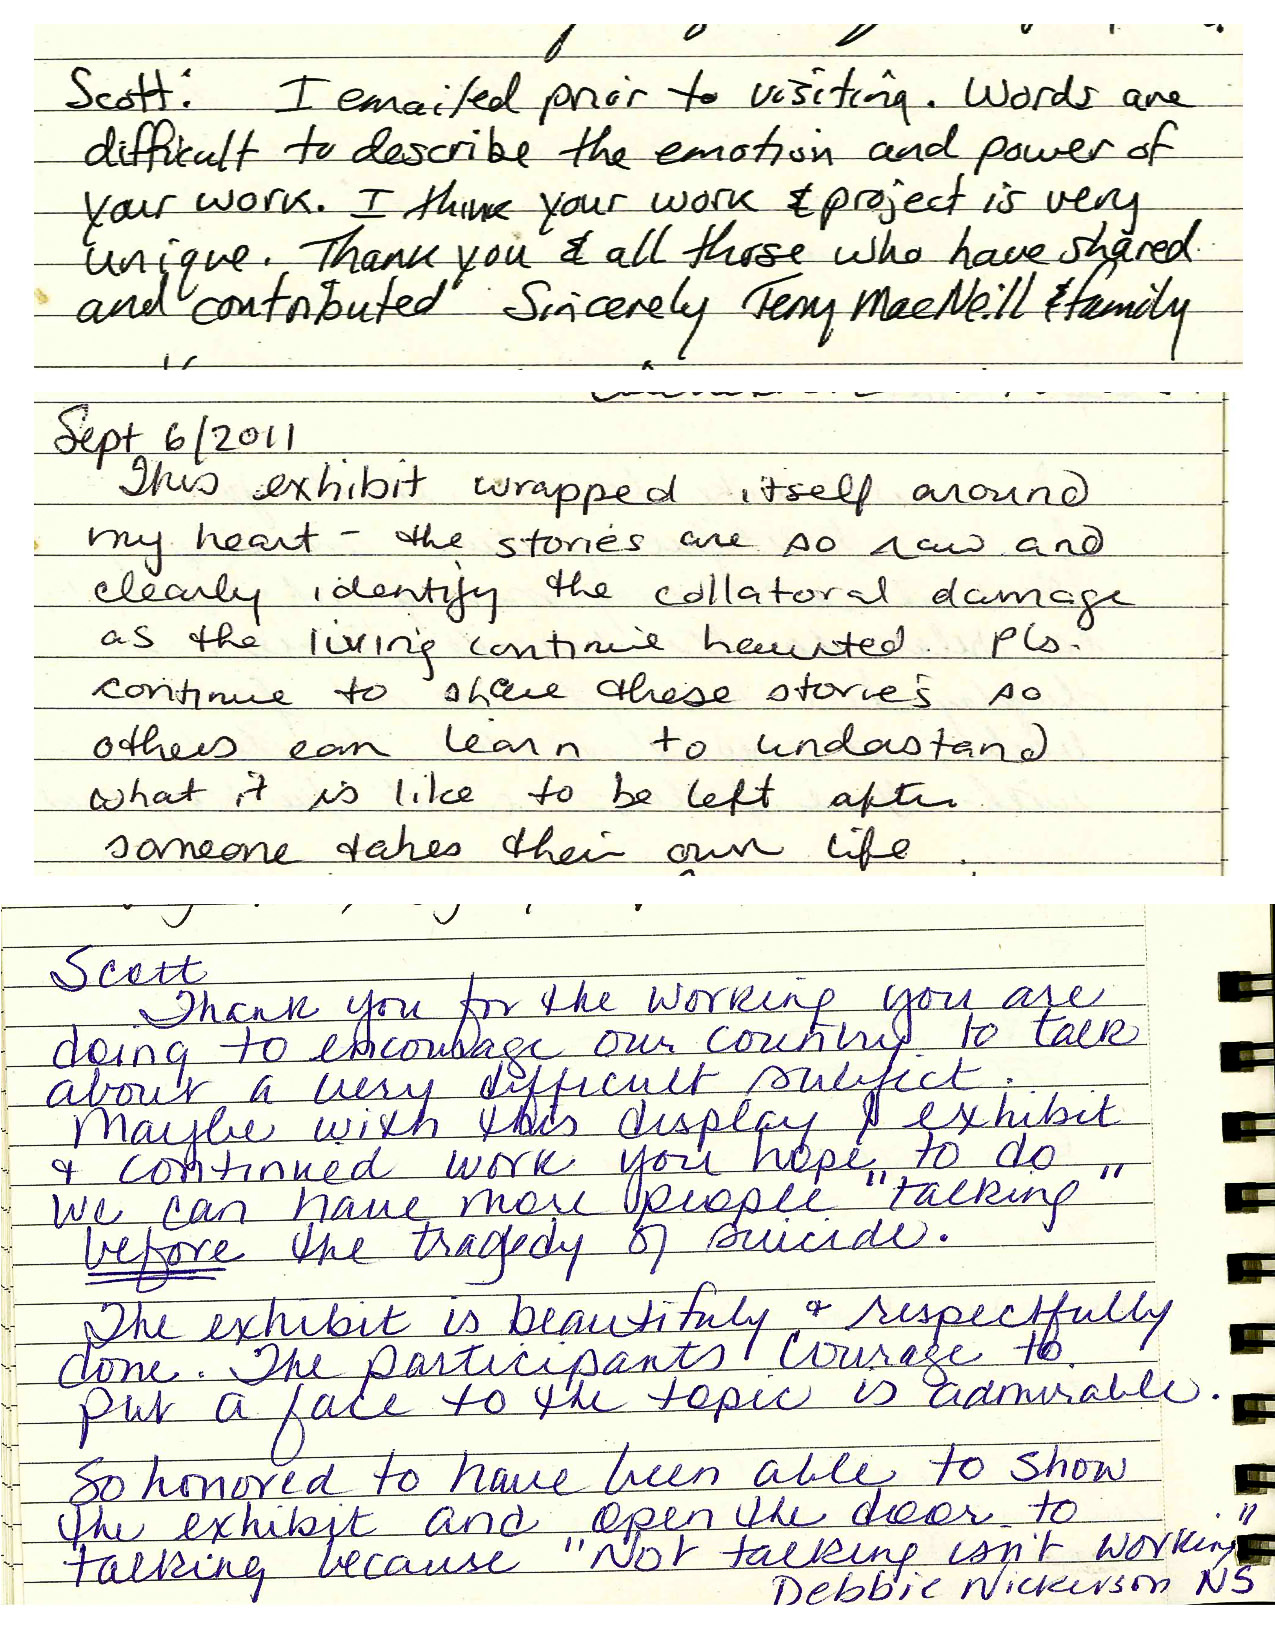 Scott: I emailed prior to visiting. Words are
difficult to describe the emotion and power of
your work. I think your work & project is very
unique. Thank you & all those who have shared
and contributed Sincerely Terry MacNeill & family
Sept 6/2011
This exhibit wrapped itself around
my heart - the stories are so raw and
clearly identify the collatoral damage
as the living continue haunted. Pls.
continue to share these stories so
others can learn to understand
what it is like to be left after
someone takes their own life.
Scott
Thank you for the working you are
doing to encourage our country to talk
about a very difficult subject.
Maybe with this display & exhibit
& continued work you hope to do
we can have more people "talking"
before the tragedy of suicide.
The exhibit is beautifuly & respectfully
done. The participants courage to
put a face to the topic is admirable.
So honored to have been able to show
the exhibit and open the door to
talking because "Not talking isn't working"
Debbie Nickerson NS